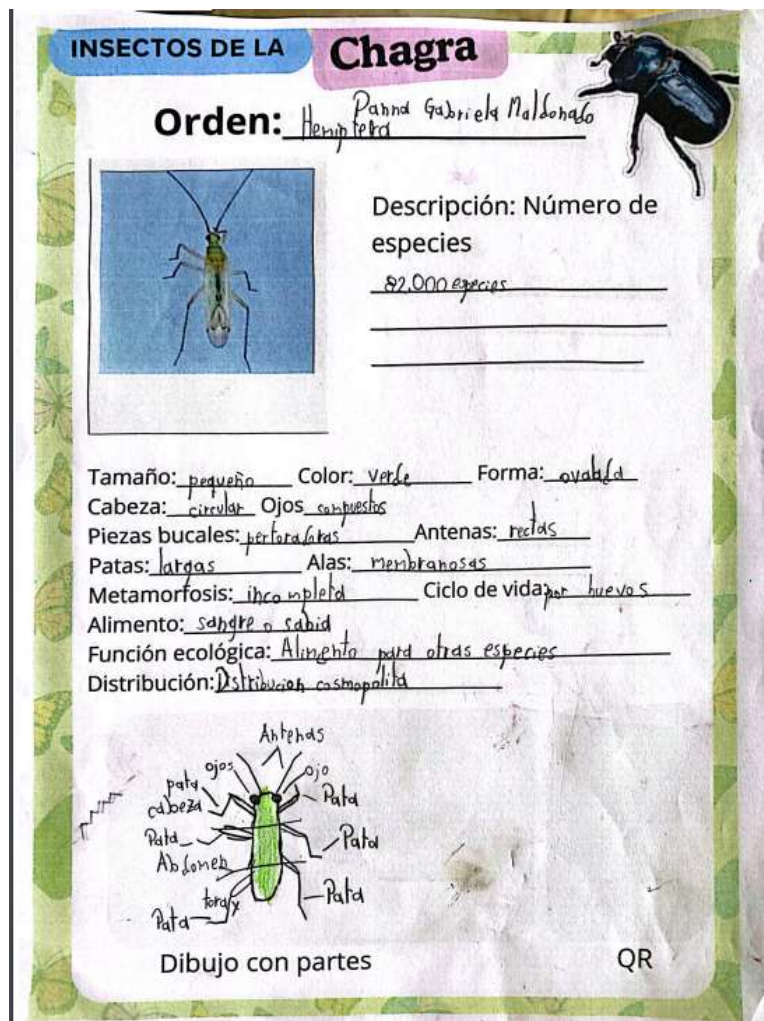 INSECTOS DE LA Chagra
Panna Gabriela Maldonado
Orden: Hemiptera
Descripción: Número de
especies
82.000 especies
Tamaño: pequeño Color: verde Forma: ovalada
Cabeza: circular Ojos compuestos
Piezas bucales: perforadoras Antenas: rectas
Patas: largas Alas: membranosas
Metamorfosis: incompleta Ciclo de vida: por huevos
Alimento: sangre o sabia
Función ecológica: Alimento para otras especies
Distribución: Distribucion cosmopolita
Antenas
ojos ojo
pata
cabeza Pata
Pata Pata
Abdomen
torax Pata
Pata
Dibujo con partes QR